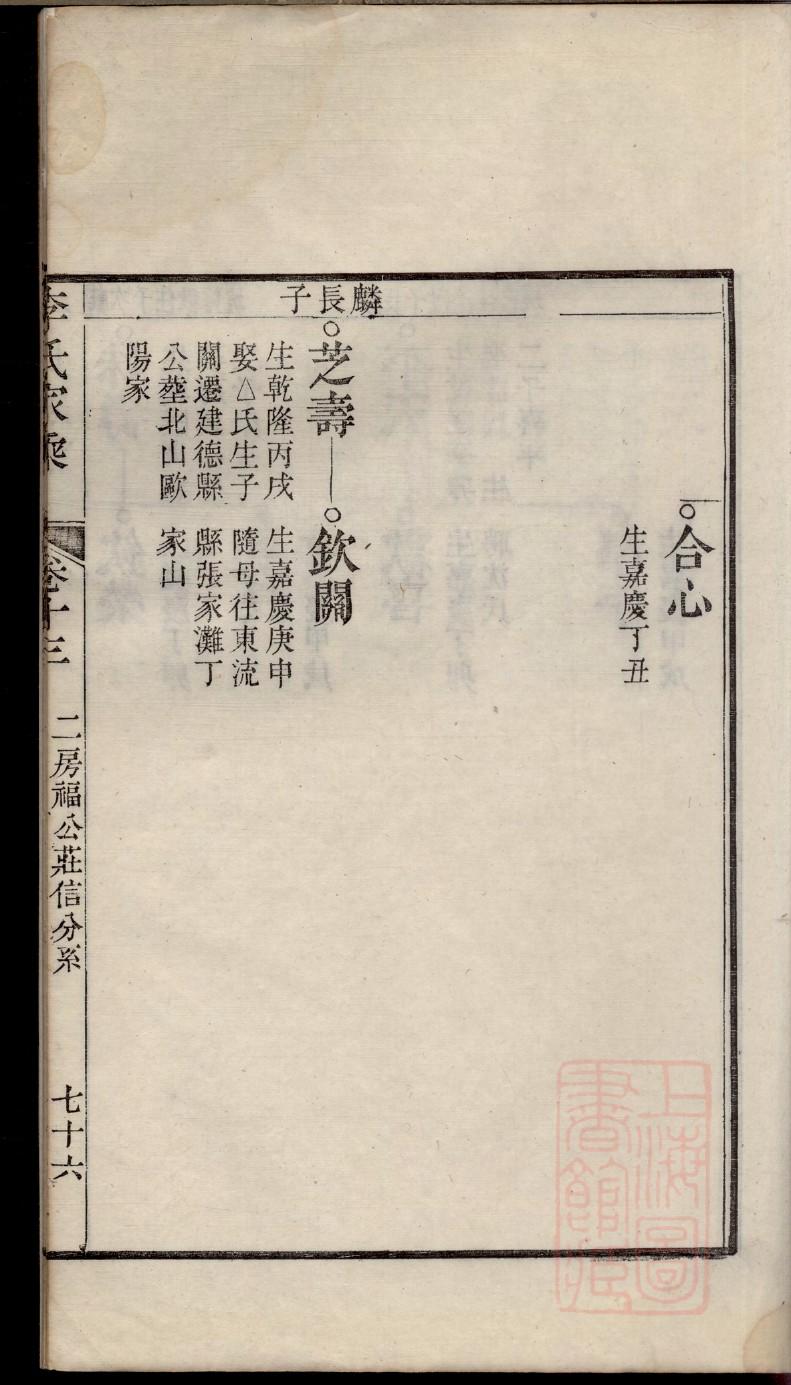 合心
生嘉慶丁丑
麟長子
芝壽
生乾隆丙戌
娶△氏生子
關遷建德縣
公塟北山歐
陽家
欽關
生嘉慶庚申
隨母往東流
縣張家灘丁
家山
李氏家乘
卷十三
二房福公莊信分系
七十六
上海圖
書館藏